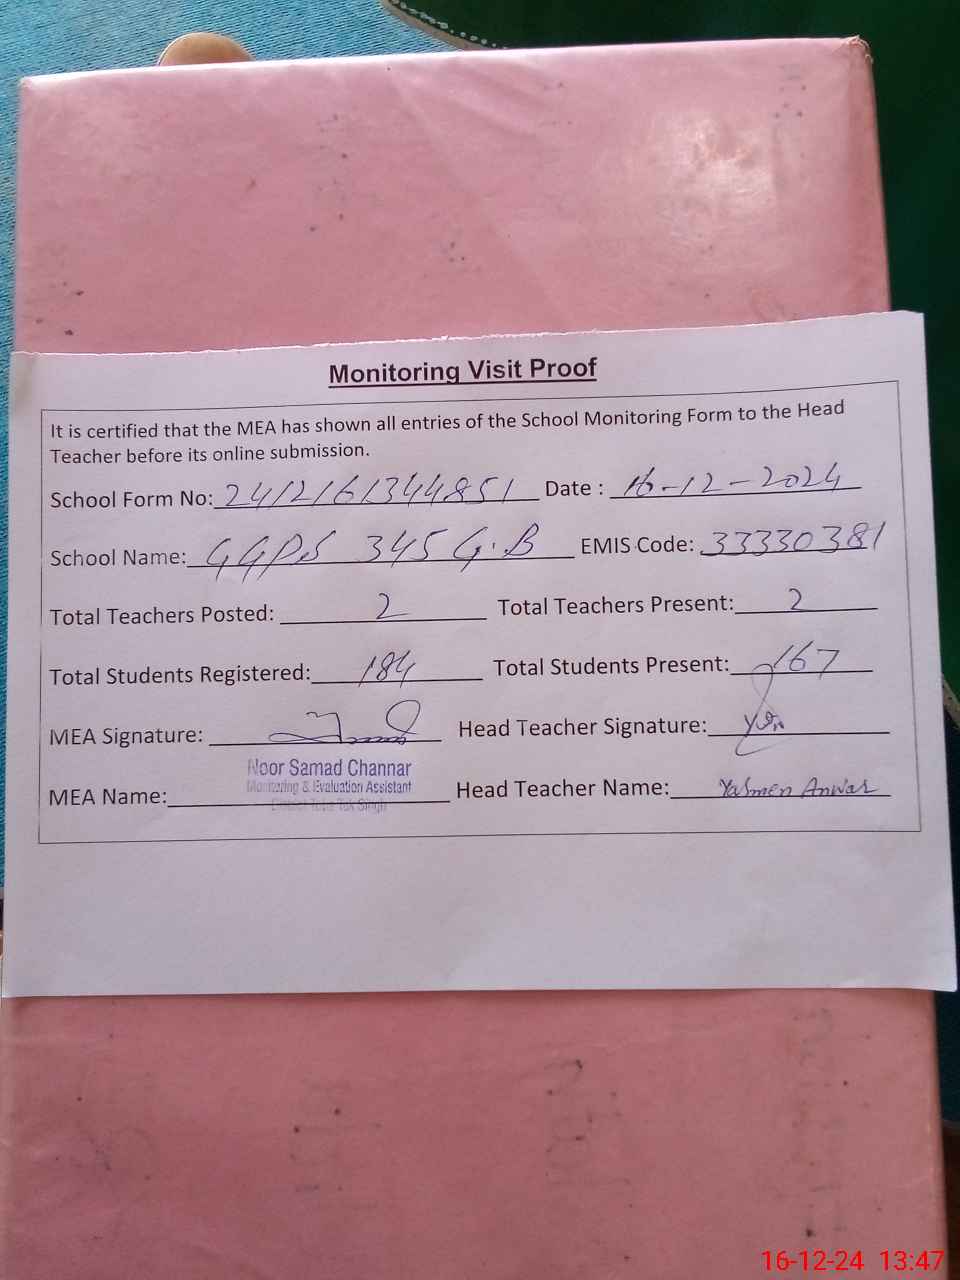 Monitoring Visit Proof
It is certified that the MEA has shown all entries of the School Monitoring Form to the Head
Teacher before its online submission.
School Form No: 2412161344851 Date : 16-12-2024
School Name: GGPS 345 G.B EMIS Code: 33330381
Total Teachers Posted: 2 Total Teachers Present: 2
Total Students Registered: 184 Total Students Present: 167
MEA Signature: Head Teacher Signature:
Noor Samad Channar
Monitoring & Evaluation Assistant
District Toba Tek Singh
MEA Name: Head Teacher Name: Yasmen Anwar
16-12-24 13:47